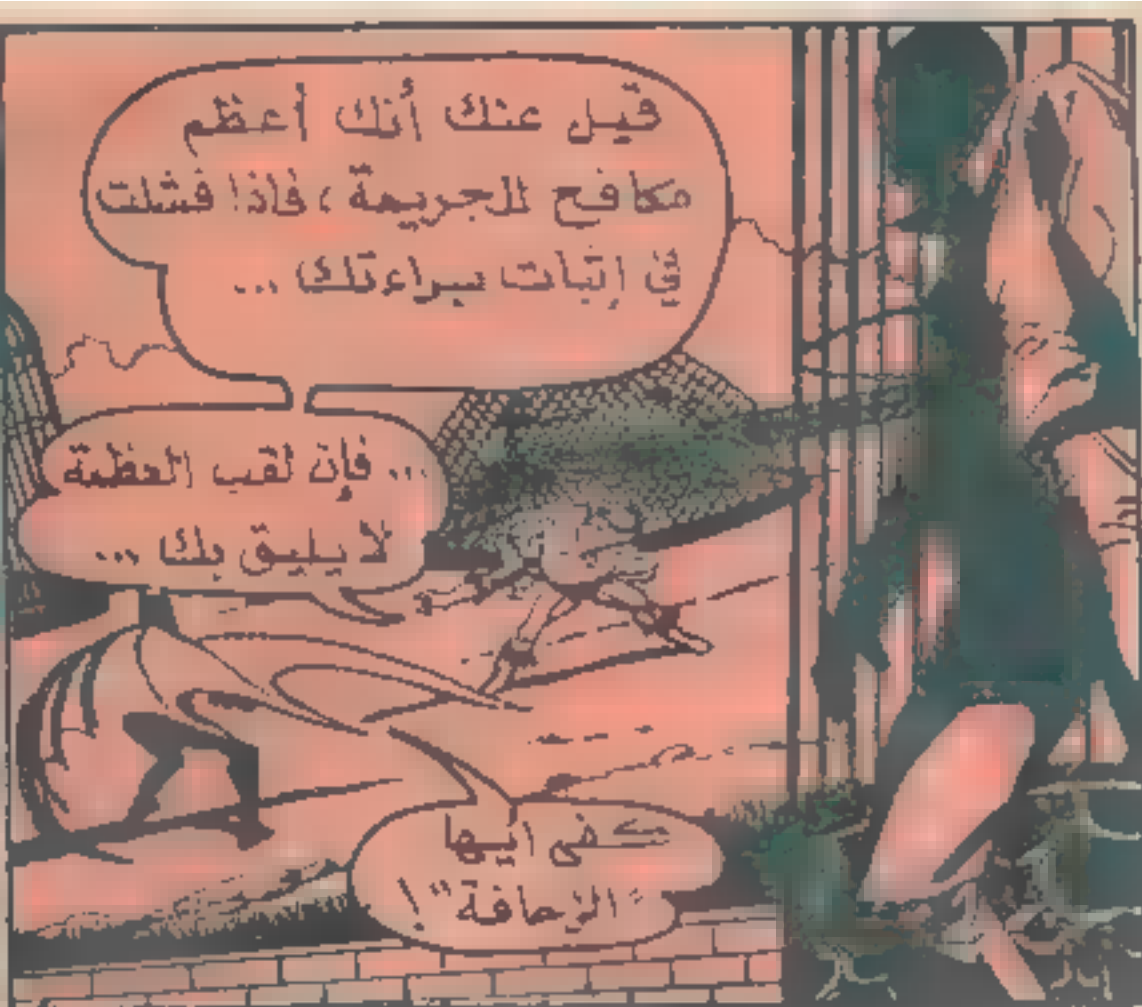 قيل عنك أنك أعظم
مكافح للجريمة ، فاذا فشلت
في إثبات براءتك ...
... فإن لقب العظمة
لا يليق بك ...
كفى ايها
"الزحافة" !